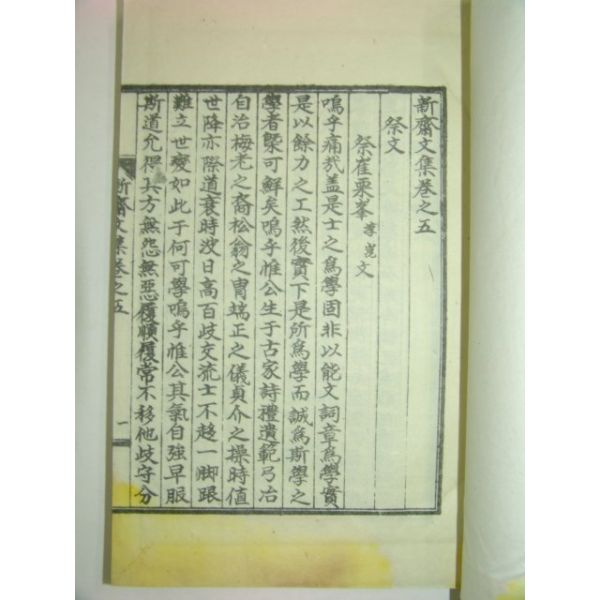 新齋文集卷之五
祭文
祭崔栗峯李嵬文
嗚乎痛哉盖是士之爲學固非以能文詞章爲學實
是以餘力之工然後實下是所爲學而誠爲斯學之
學者槩可鮮矣嗚乎惟公生于古家詩禮遺範弓冶
自治梅老之裔松翁之胄端正之儀貞介之操時值
世降亦際道衰時波日高百歧交流士不趍一脚跟
難立世變如此于何可學嗚乎惟公其氣自強早服
斯道允得其方無怨無惡履順履常不移他歧守分
新齋文集卷之五
一